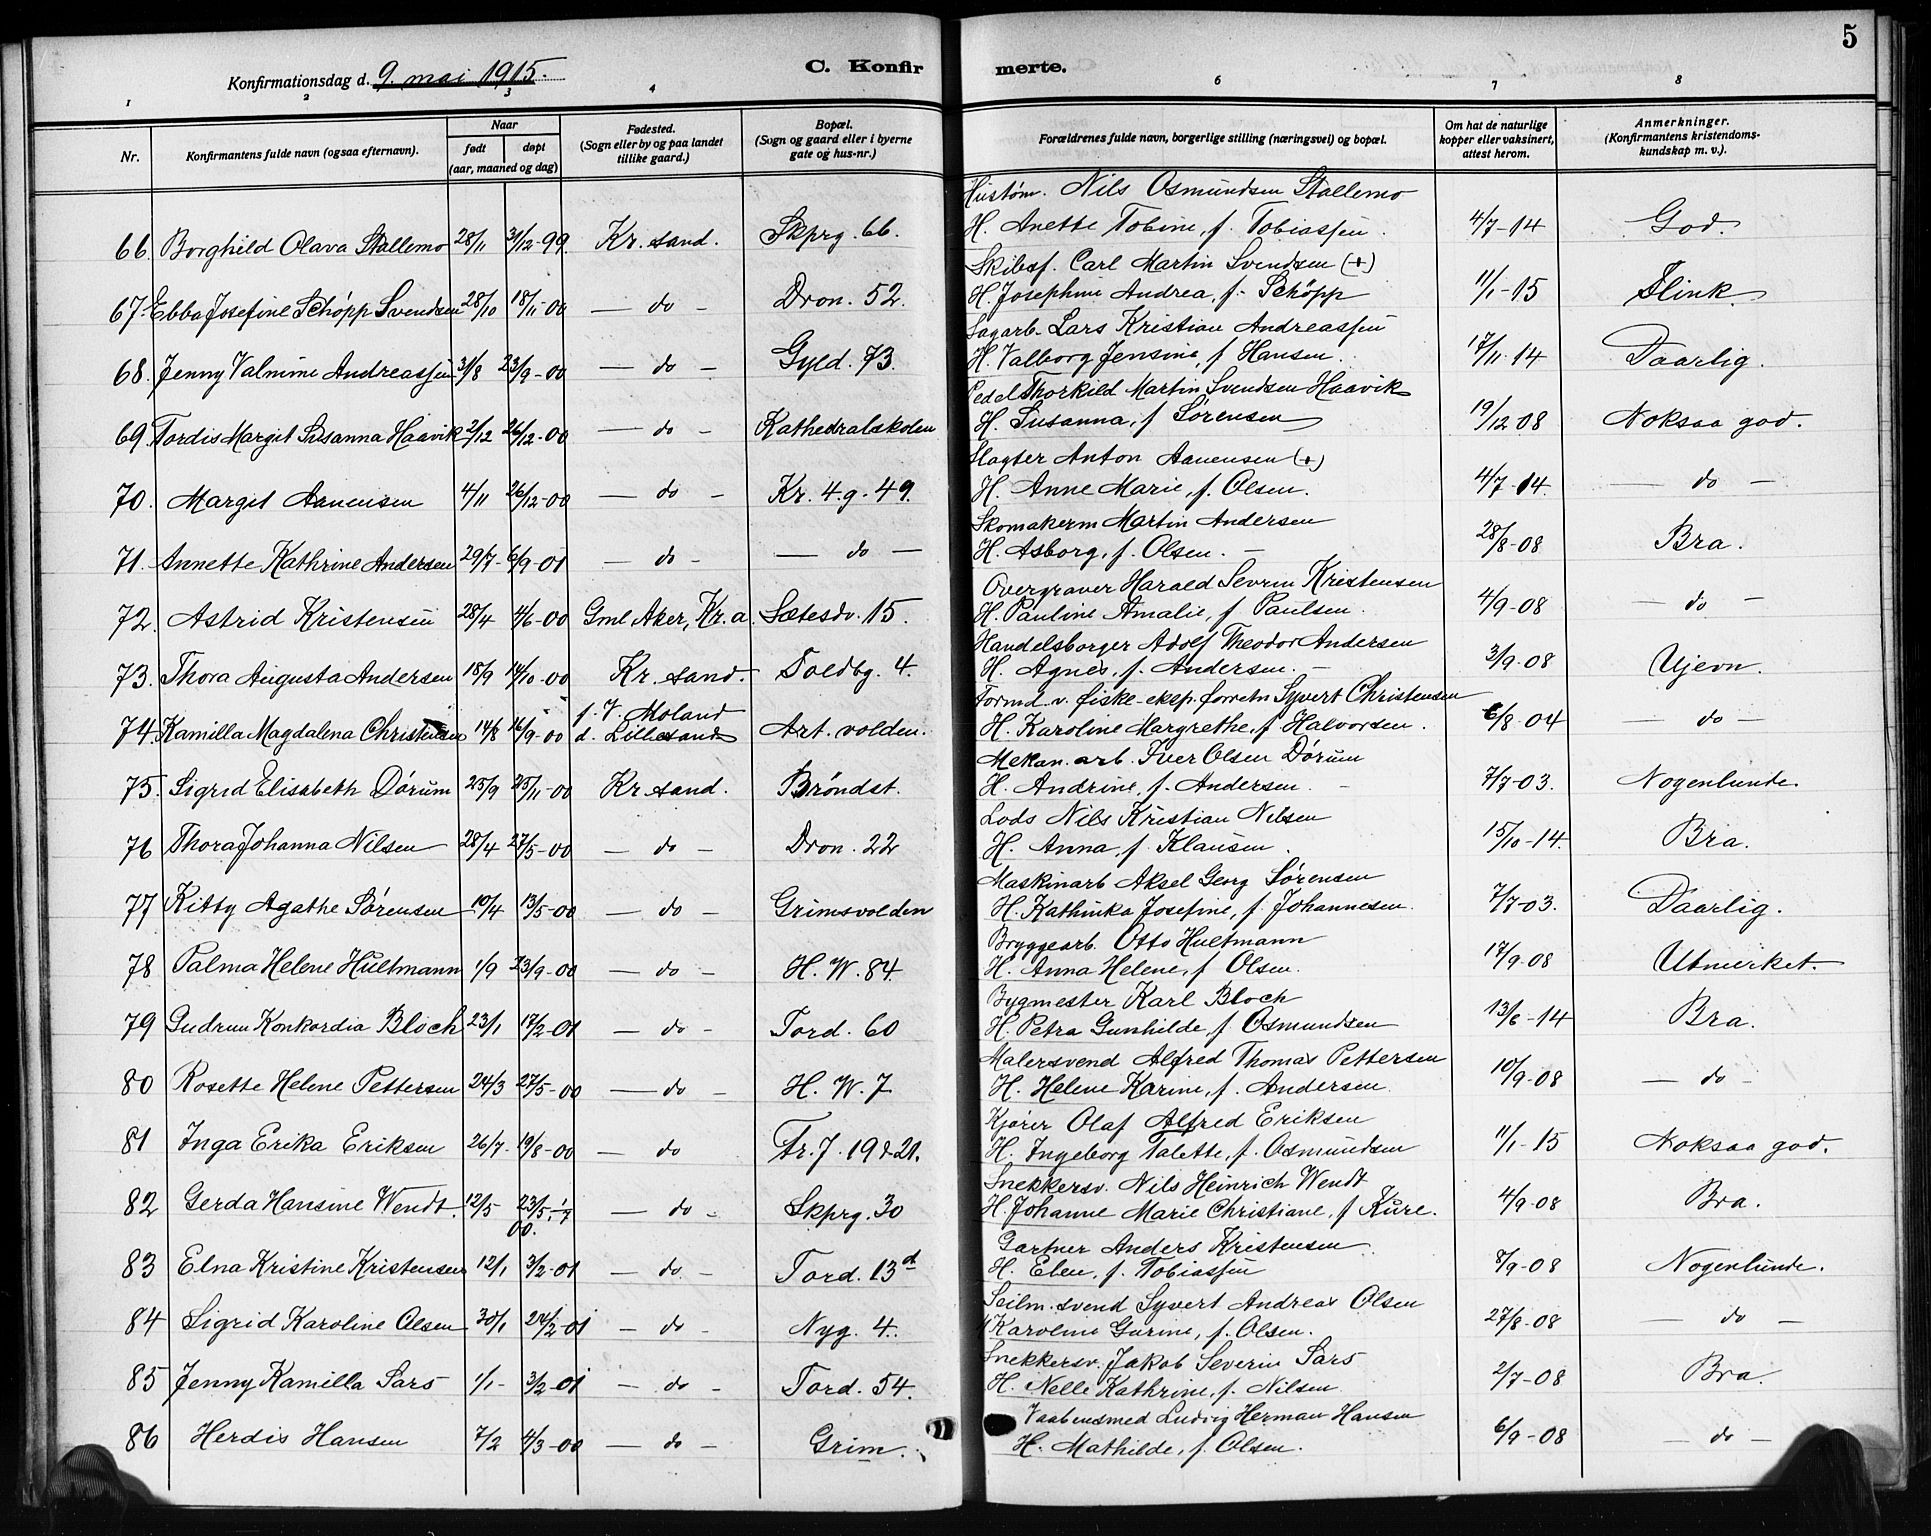 5
Konfirmationsdag d. 9. mai 1915.
C. Konfirmerte.
1 2 3 4 6 7 8
Nr. Konfirmantens fulde navn (ogsaa efternavn). Naar født døpt (aar, maaned og dag) Fødested. (Sogn eller by og paa landet tillike gaard.) Bopæl. (Sogn og gaard eller i byerne gate og hus-nr.) Forældrenes fulde navn, borgerlige stilling (næringsvei) og bopæl. Om hat de naturlige kopper eller vaksinert, attest herom. Anmerkninger. (Konfirmantens kristendomskundskap m. v.).
Hustøm. Nils Osmundsen Stallemo
66. Borghild Olava Stallemo 28/11 31/12-99. Kr. sand. Skprg. 66. H. Anette Tobine, f. Tobiassen. 4/7-14 God.
Skibsf. Carl Martin Svendsen (+)
67. Ebba Josefine Schöpp Svendsen 28/10 18/11-00 — do — Dron. 52. H. Josephine Andrea, f. Schöpp 11/1-15 Flink.
Sagarb. Lars Kristian Andreassen
68. Jenny Valmine Andreassen 31/8 23/9-00 — do — Gyld. 73. H. Valborg Jensine, f. Hansen. 17/11-14 Daarlig.
Pedel Thorkild Martin Svendsen Haavik
69 Tordis Margit Susanna Haavik 2/12 26/12-00 — do — Kathedralskolen H. Susanna, f. Sørensen 19/12 08 Noksaa god.
Slagter Anton Aanensen (+)
70. Margit Aanensen 4/11 26/12-00 — do — Kr. 4. g. 49. H. Anne Marie, f. Olsen. 4/7-14. — do —
Skomakerm Martin Andersen
71. Annette Kathrine Andersen 29/7- 6/9-01 — do — — do — H. Asborg, f. Olsen. — 28/8-08 Bra.
Overgraver Harald Severin Kristensen
72. Astrid Kristensen 28/4 4/6-00 Gml Aker, Kr.a Sætesdv. 15. H. Pauline Amalie, f. Paulsen. 4/9-08 — do —
Handelsborger Adolf Theodor Andersen
73. Thora Augusta Andersen 18/9 14/10-00 Kr. sand. Toldbg. 4. H. Agnes, f. Andersen. — 3/9-08 Ujevn.
Formd v. fiske-eksp. forretn Syvert Christensen
74. Kamilla Magdalena Christensen 14/8 16/9-00 f. V. Moland d. Lillesand Art. volden. H. Karoline Margrethe, f. Halvorsen. 6/8-04 — do —
Mekan. arb. Iver Olsen Dørum
75. Sigrid Elisabeth Dørum 23/9 25/11-00 Kr. sand. Brøndst. H. Andrine, f. Andersen. — 7/7-03. Nogenlunde.
Lods Nils Kristian Nilsen
76 Thora Johanna Nilsen 28/4 27/5-00 — do — Dron. 22 H. Anna, f. Klausen. 15/10-14. Bra.
Maskinarb Aksel Georg Sørensen
77 Kitty Agathe Sørensen 10/4 13/5-00 — do — Grimsvolden H. Kathinka Josefine, f. Johannesen. 7/7-03. Daarlig.
Bryggearb. Otto Hultmann
78 Palma Helene Hultmann 1/9 23/9-00 — do — H. W. 84. H. Anna Helene, f. Olsen. 17/9-08 Utmerket.
Bygmester Karl Bloch
79 Gudrun Konkordia Bloch 23/1 17/2-01 — do — Tord. 60 H. Petra Gunhilde, f. Osmundsen 13/6-14 Bra.
Malersvend Alfred Thomas Pettersen
80 Rosette Helene Pettersen 24/3 27/5-00 — do — H. W. 7 H. Helene Karine, f. Andersen. 10/9-08 — do —
Kjører Olaf Alfred Eriksen
81 Inga Erika Eriksen 26/7- 19/8-00 — do Tr. 7. 19 & 21. H. Ingeborg Talette, f. Osmundsen 11/1-15 Noksaa god.
Snekkersv. Nils Heinrich Wendt
82 Gerda Hansine Wendt. 12/5 23/5, 1/7 00. — do — Skprg. 30 H. Johanne Marie Christiane, f. Kure. 4/9-08 Bra.
Gartner Anders Kristensen
83 Elna Kristine Kristensen 12/1 3/2-01 — do — Tord. 13d H. Elen, f. Tobiassen 8/9-08 Nogenlunde.
Seilm. svend Syvert Andreas Olsen
84 Sigrid Karoline Olsen 30/1 24/2-01 — do — Nyg. 4. H Karoline Gurine, f. Olsen. 27/8-08 — do —
Snekkersv. Jakob Severin Sars
85 Jenny Kamilla Sars 1/1- 3/2-01 — do — Tord. 54. H. Nelle Kathrine, f. Nilsen 2/7-08 Bra.
Vaabensmed Ludvig Herman Hansen
86 Herdis Hansen 7/2 4/3-00 — do — Grim. H. Mathilde, f. Olsen. 6/9-08 — do —